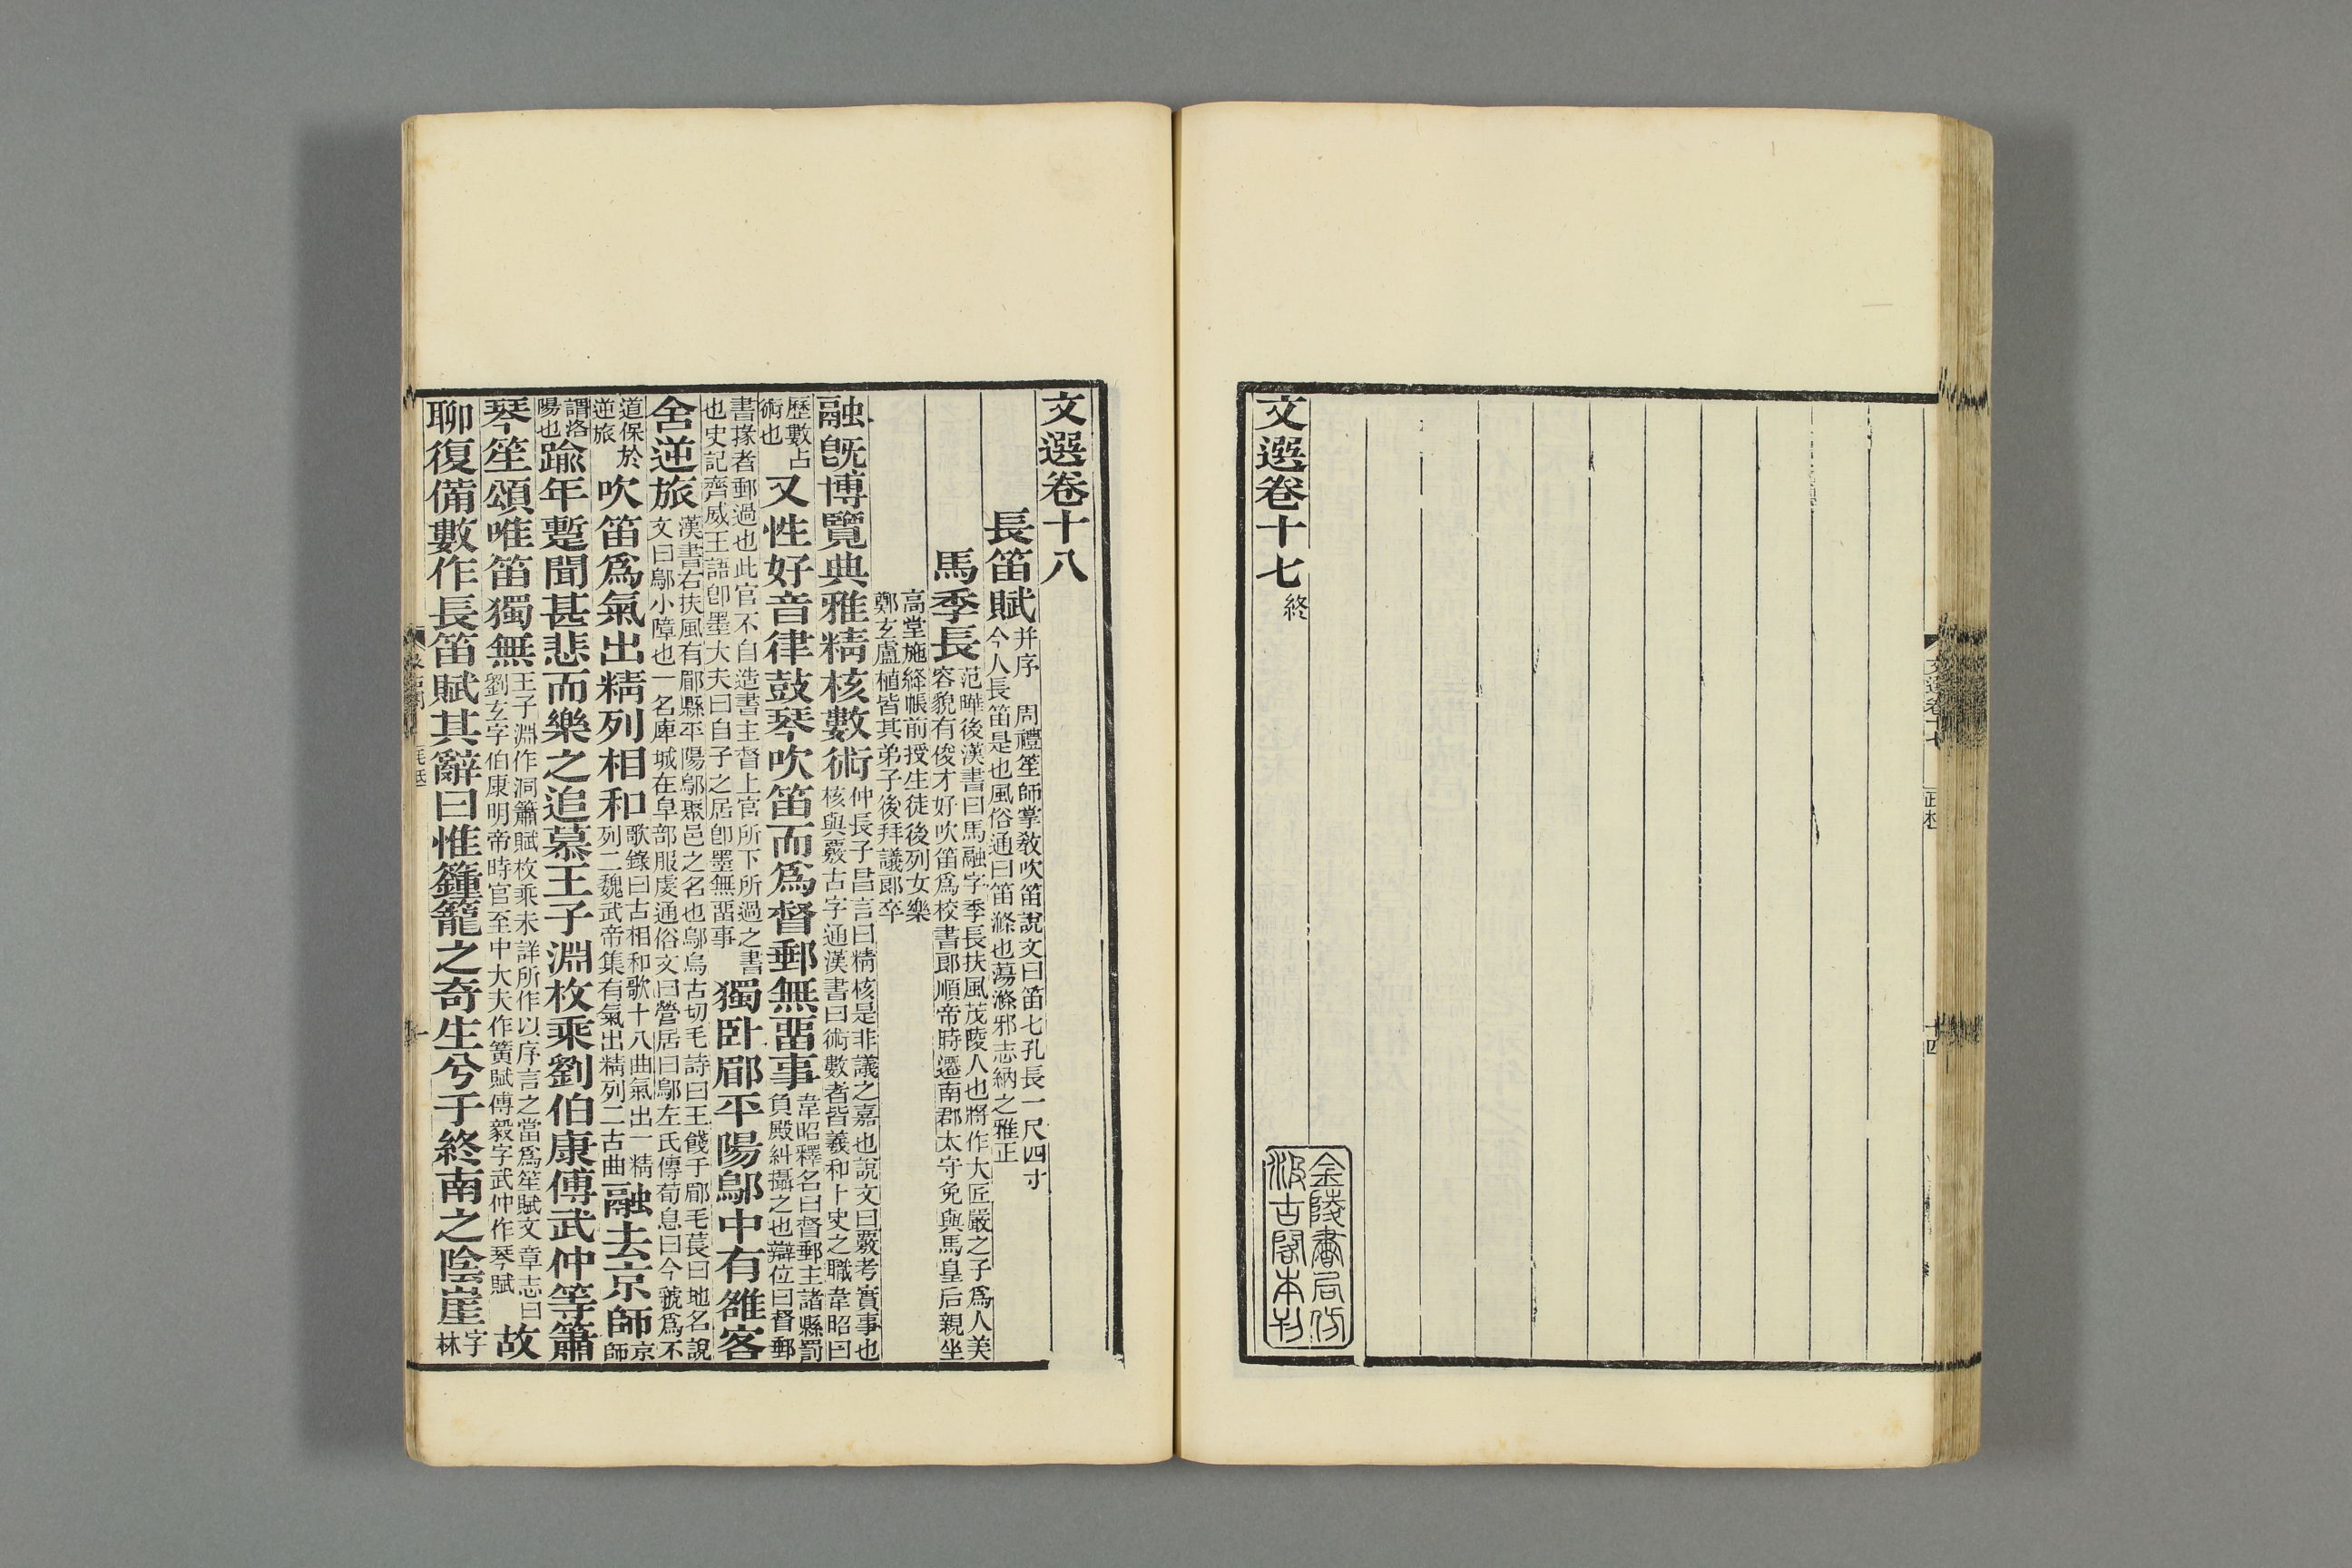 文選卷十七終
金陵書局仿
汲古閣本刊
文選卷十八
長笛賦并序 周禮笙師掌敎吹笛說文曰笛七孔長一尺四寸
今人長笛是也風俗通曰笛滌也蕩滌邪志納之雅正
馬季長范曄後漢書曰馬融字季長扶風茂陵人也將作大匠嚴之子爲人美
容貌有俊才好吹笛爲校書郎順帝時遷南郡太守免與馬皇后親坐
高堂施絳帳前授生徒後列女樂
鄭玄盧植皆其弟子後拜議郎卒
融旣博覽典雅精核數術仲長子昌言曰精核是非議之嘉也說文曰覈考實事也
核與覈古字通漢書曰術數者皆羲和卜史之職韋昭曰
歷數占
術也又性好音律鼓琴吹笛而爲督郵無畱事韋昭釋名曰督郵主諸縣罰
負殿糾攝之也辯位曰督郵
書掾者郵過也此官不自造書主督上官所下所過之書
也史記齊威王語卽墨大夫曰自子之居卽墨無畱事獨臥郿平陽鄔中有雒客
舍逆旅漢書右扶風有郿縣平陽鄔聚邑之名也鄔烏古切毛詩曰王餞于郿毛萇曰地名說
文曰鄔小障也一名庳城在阜部服虔通俗文曰營居曰鄔左氏傳荀息曰今虢爲不
道保於
逆旅吹笛爲氣出精列相和歌錄曰古相和歌十八曲氣出一精
列二魏武帝集有氣出精列二古曲融去京師京
師
謂洛
陽也踰年蹔聞甚悲而樂之追慕王子淵枚乘劉伯康傅武仲等簫
琴笙頌唯笛獨無王子淵作洞簫賦枚乘未詳所作以序言之當爲笙賦文章志曰
劉玄字伯康明帝時官至中大夫作簧賦傅毅字武仲作琴賦故
聊復備數作長笛賦其辭曰惟籦籠之奇生兮于終南之陰崖字
林